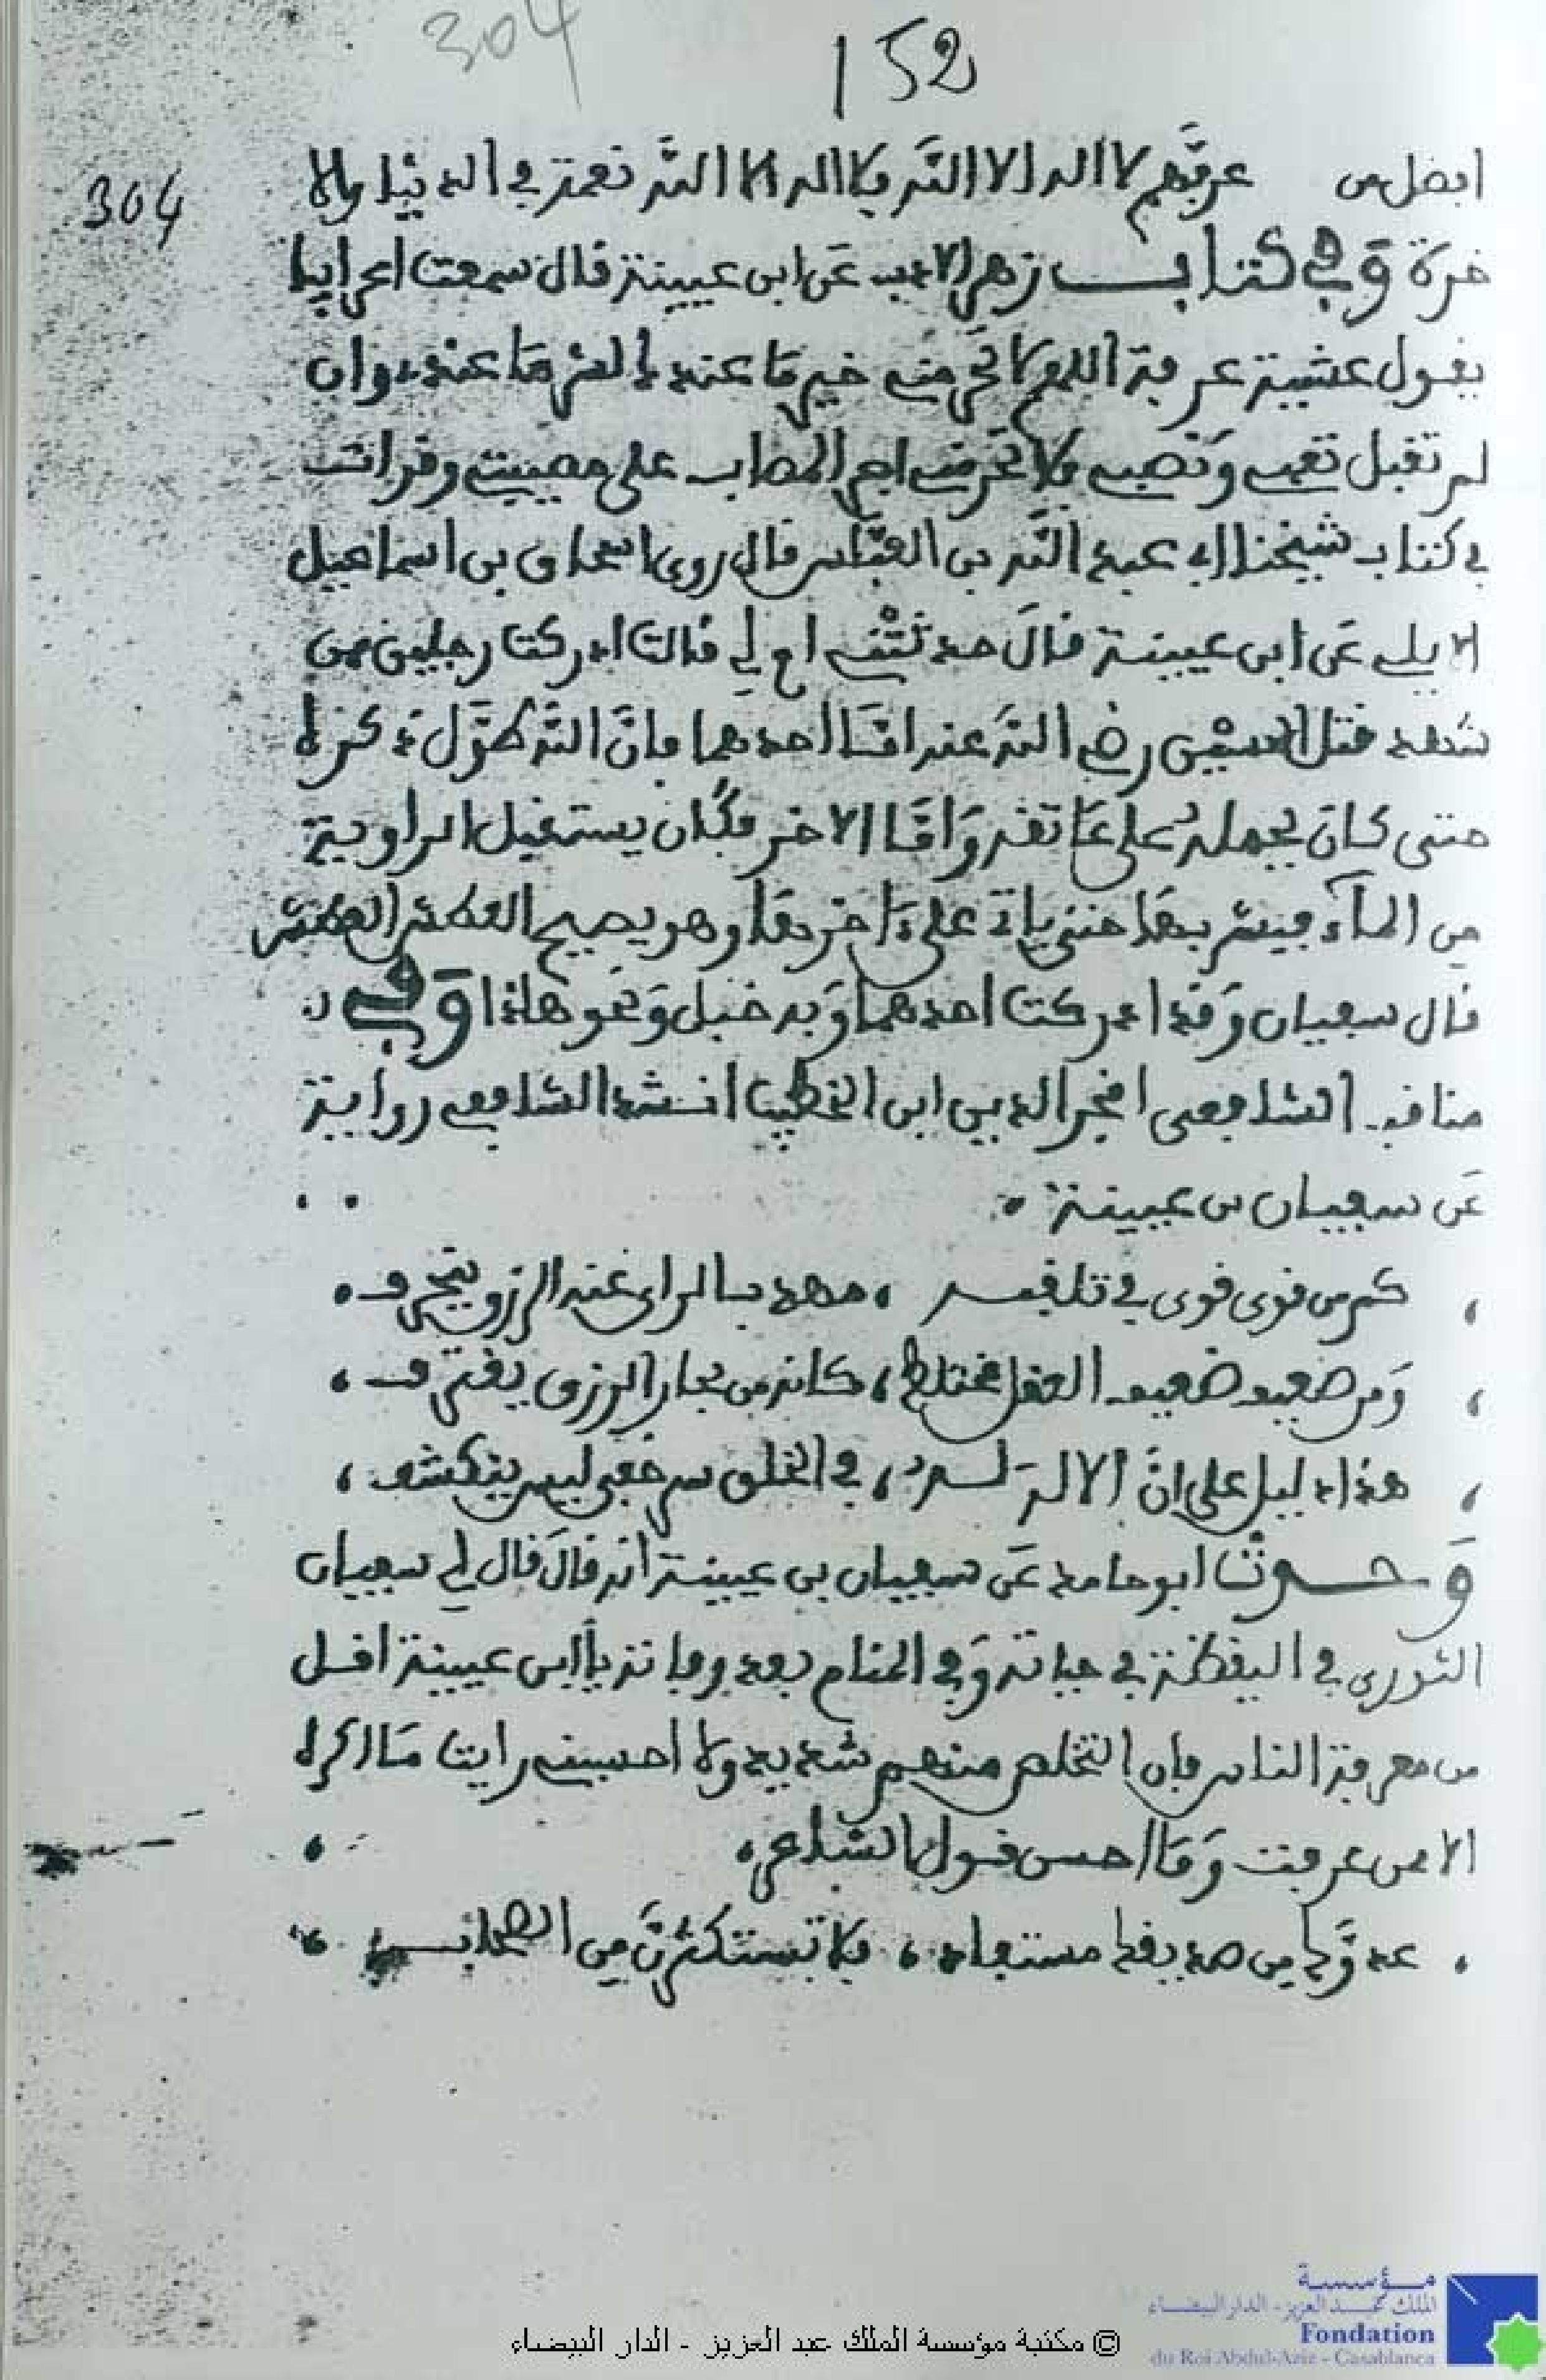 304
152
304
افضل من عرفهم لا اله الا الله فلا اله الا الله نعمة في الدنيا والا
خرة وفي كتاب زهر الادب عن ابن عيينة قال سمعت اعرابيا
يقول عشية عرفة اللهم لا تحرمني خير ما عندك لشر ما عندي وان
لم تقبل تعبي ونصبي فلا تحرمني اجر المصاب على مصيبته وقرات
في كتاب شيخنا ابي عبد الله بن العباس قال روى اسحاق بن اسماعيل
الايلي عن ابن عيينة قال حدثتني ام لي قالت ادركت رجلين ممن
شهد قتل الحسين رضي الله عنه امّا احدهما فانّ الله طوّل ذكره
حتى كان يحمله على عاتقه وامّا الاخر فكان يستقبل الراوية
من الماء فيشربها حتى ياتي على ءاخرها وهو يصيح العطش العطش
قال سفيان وقد ادركت احدهما وبه خبل ونحو هاذا وفي
مناقب الشافعي لفخر الدين ابن الخطيب انشد الشافعي رواية
عن سفيان بن عيينة
كم من قوى قوى في تلقبه ، مهذب الراى عنه الرزق ينحرف
ومن ضعيف ضعيف العقل مختلط ، كانه من بحار الرزق يغترف ،
هذا دليل على انّ الاله له ، في الخلق سر خفي ليس ينكشف ،
وحدث ابو حامد عن سفيان بن عيينة انه قال قال لي سفيان
الثوري في اليقظة في حياته وفي المنام بعد وفاته ياابن عيينة اقل
من معرفة الناس فان التخلص منهم شديد ولا احسبني رايت ما اكره
الا ممن عرفت وما احسن قول الشاعر ،
عدوّك من صديقك مستفاد ، فلا تستكثرنّ من الصحاب
© مكتبة مؤسسة الملك عبد العزيز - الدار البيضاء
مؤسسة
الملك عبد العزيز - الدار البيضاء
Fondation
du Roi Abdul-Aziz - Casablanca